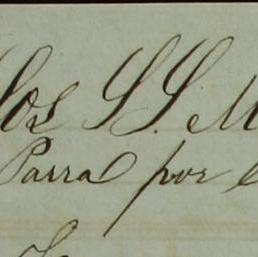 Los SS. M
Parra por